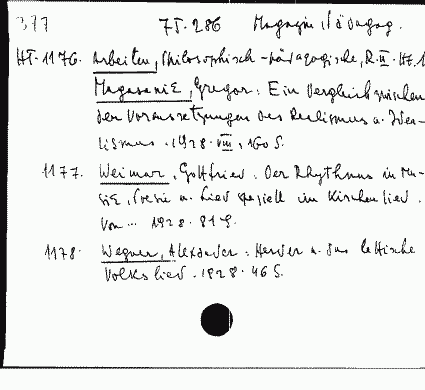 377 7J.286 Magazin, Pädagog.
HI.1176. Arbeiten, Philosophisch-pädagogische, R.II. H.1
Magasanik, Gregor: Ein Vergleich zwischen
den Voraussetzungen des Realismus u. Idea-
lismus. 1928. VIII, 160 S.
1177. Weimar, Gottfried: Der Rhythmus in Mu-
sik, Poesie u. Lied speziell im Kirchenlied.
Von ... 1928. 81 S.
1178. Wegner, Alexander: Herder u. das lettische
Volkslied. 1928. 46 S.